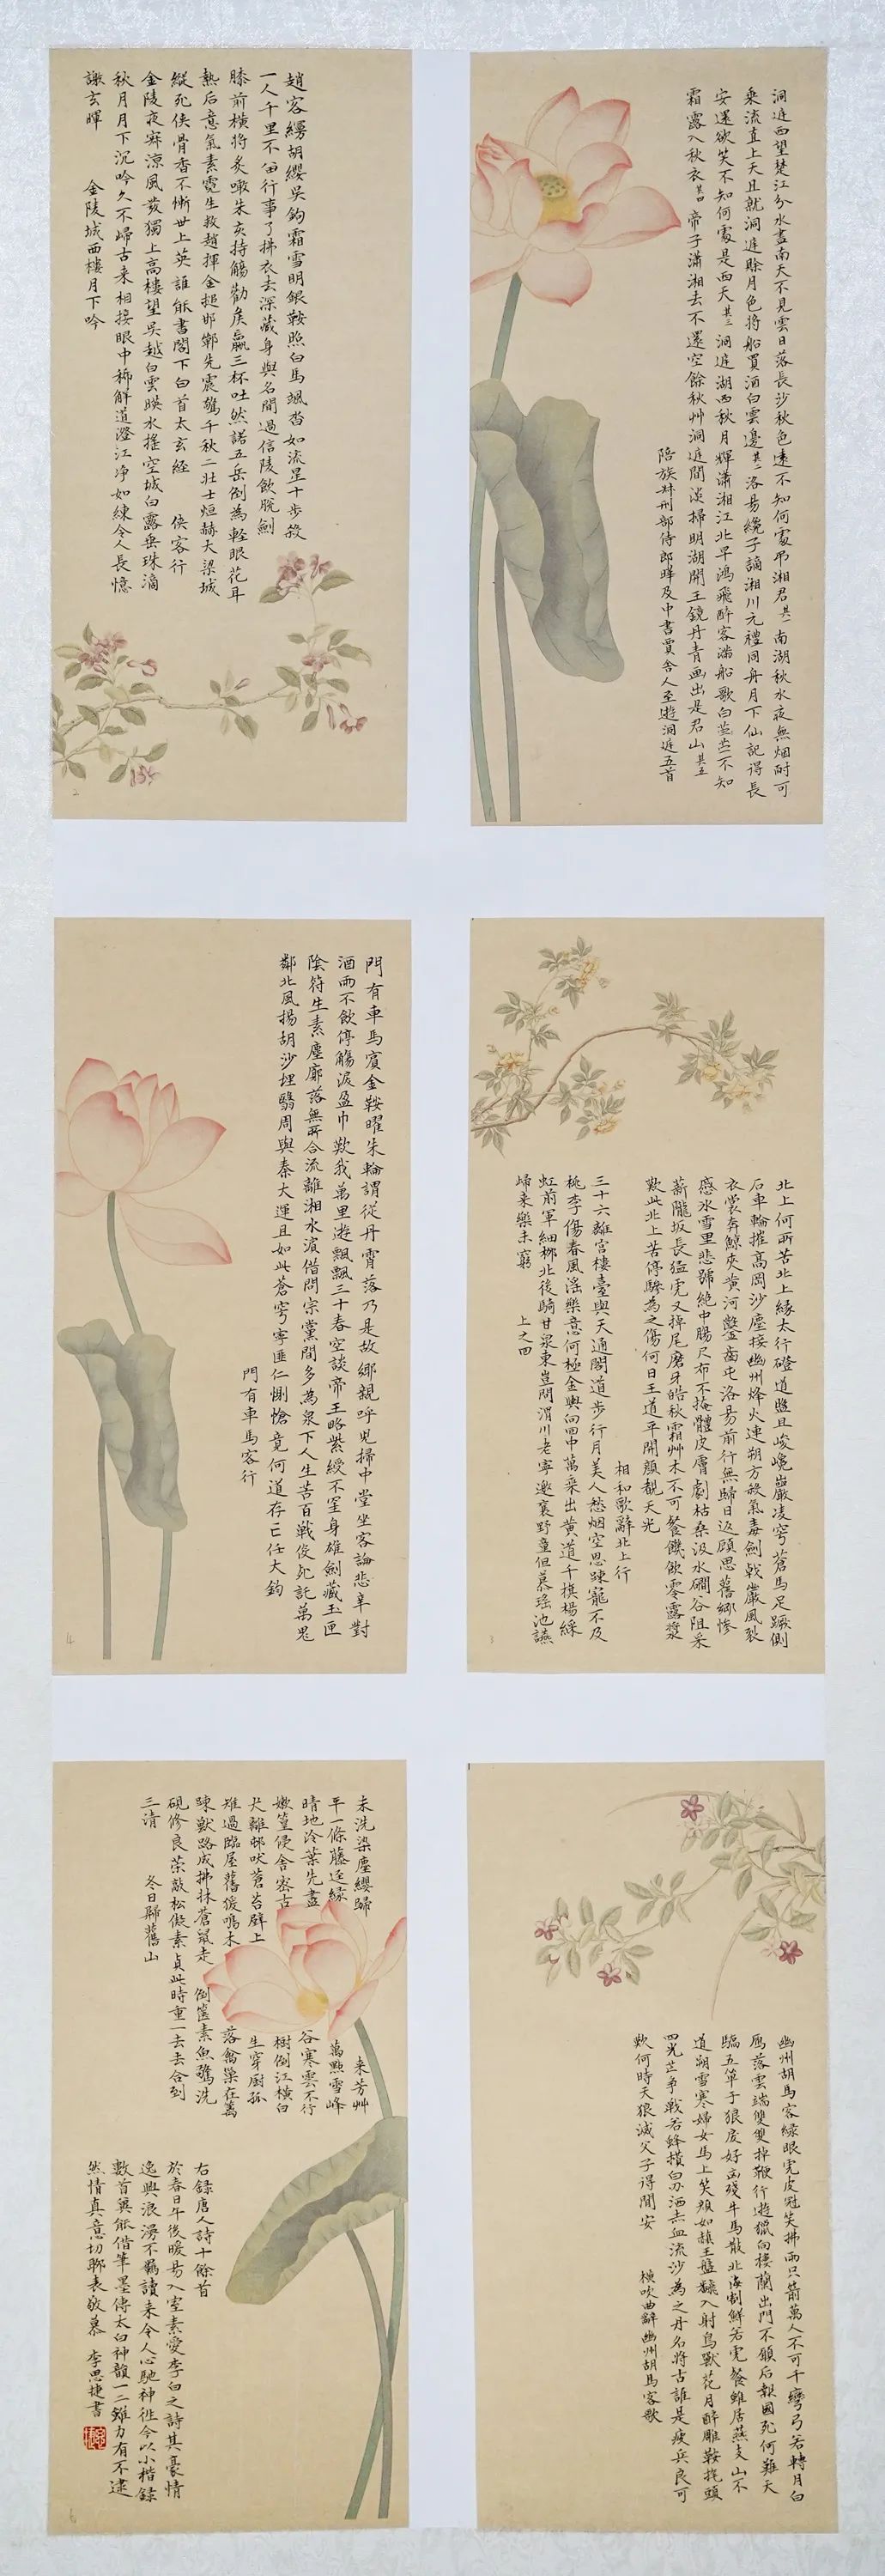 洞庭西望楚江分水盡南天不見雲日落長沙秋色遠不知何處吊湘君其一南湖秋水夜無烟耐可
乘流直上天且就洞庭賒月色將船買酒白雲邊其二洛昜纔子謫湘川元禮同舟月下仙記得長
安還欲笑不知何處是西天其三洞庭湖西秋月輝瀟湘江北早鴻飛醉客滿船歌白苎不知
霜露入秋衣其四帝子瀟湘去不還空餘秋艸洞庭間淡掃明湖開玉鏡丹青画出是君山其五
陪族叔刑部侍郎曄及中書賈舍人至遊洞庭五首
趙客縵胡纓吳鉤霜雪明銀鞍照白馬颯沓如流星十步殺
一人千里不留行事了拂衣去深藏身與名閒過信陵飲脫劍
膝前橫將炙啖朱亥持觴勸矦嬴三杯吐然諾五岳倒為輕眼花耳
熱后意氣素霓生救趙揮金搥邯鄲先震驚千秋二壯士烜赫大梁城
縱死俠骨香不慚世上英誰能書閣下白首太玄經 俠客行
金陵夜寂涼風發獨上高樓望吳越白雲暎水搖空城白露垂珠滴
秋月月下沉吟久不歸古來相接眼中稀解道澄江净如練令人長憶
謝玄暉 金陵城西樓月下吟
北上何所苦北上緣太行磴道盤且峻巉巖凌穹蒼馬足蹶側
石車輪摧高岡沙塵接幽州烽火連朔方殺氣毒劍戟嚴風裂
衣裳奔鯨夾黄河鑿齒屯洛昜前行無歸日返顧思舊鄉慘
慼冰雪里悲號絶中腸尺布不掩體皮膚劇枯桑汲水磵谷阻采
薪隴坂長猛虎又掉尾磨牙皓秋霜艸木不可餐饑飲零露漿
歎此北上苦停驂為之傷何日王道平開顏覩天光
相和歌辭北上行
三十六離宫樓臺與天通閣道步行月美人愁烟空恩疎寵不及
桃李傷春風淫樂意何極金輿向回中萬乘出黄道千旗楊綵
虹前軍細栁北後騎甘泉東豈問渭川老寧邀襄野童但慕瑶池讌
歸来樂未窮 上之回
門有車馬賓金鞍曜朱輪謂從丹霄落乃是故鄉親呼兒掃中堂坐客論悲辛對
酒兩不飲停觴淚盈巾歎我萬里遊飄飄三十春空談帝王略紫綬不罣身雄劍藏玉匣
陰符生素塵廓落無所合流離湘水濵借問宗黨間多為泉下人生苦百戰役死託萬鬼
鄰北風揚胡沙埋翳周與秦大運且如此蒼穹寧匪仁惻愴竟何道存亡任大鈞
門有車馬客行
幽州胡馬客緑眼虎皮冠笑拂兩只箭萬人不可干彎弓若轉月白
鴈落雲端雙雙掉鞭行遊獵向樓蘭出門不顧后報國死何難天
驕五單于狼戾好凶殘牛馬散北海割鮮若虎餐雖居燕支山不
道朔雪寒婦女馬上笑顏如赬玉盤飜入射鳥獸花月醉雕鞍旄頭
四光芒争戰若蜂攅白刃洒赤血流沙為之丹名將古誰是疲兵良可
歎何時天狼滅父子得閒安 橫吹曲辭幽州胡馬客歌
未洗染塵纓歸來芳艸
平一條藤迳緑萬點雪峰
晴地冷葉先盡谷寒雲不行
嫩篁侵舍密古樹倒江橫白
犬離邨吠蒼苔壁上生穿廚孤
雉過臨屋舊猨鳴木落禽巢在籬
疎獸路成拂牀蒼鼠走倒篋素魚驚洗
硯修良策敲松儗素貞此時重一去去合到
三清 冬日歸舊山
右錄唐人詩十餘首
於春日午後暖昜入室素愛李白之詩其豪情
逸興浪漫不羈讀来令人心馳神徃今以小楷録
數首冀能借筆墨傳太白神韻一二雖力有不逮
然情真意切聊表敬慕 李思捷書